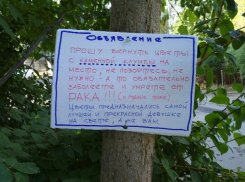 Объявление
Прошу вернуть цветы
с клумбы на
место, не позорьтесь, не
нужно - а то обязательно
заболеете и умрете от
РАКА!!!
Цветы предназначались самой
лучшей и прекрасной девушке
на свете, а не вам